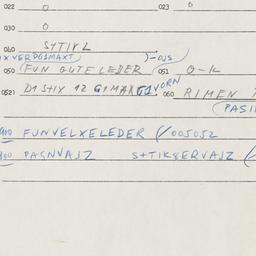 022 0 023 0
030 0
040 STIXL
XVERDGIMAXT )-OJS
050 FUN GUTE LEDER 051 O-K
052) D1 STIX 12 GIMAXT GIVORN 060 RIMEN
PASI
FUNVELXELEDER (/005052
PAGNVAJZ STTIKSERVAJZ